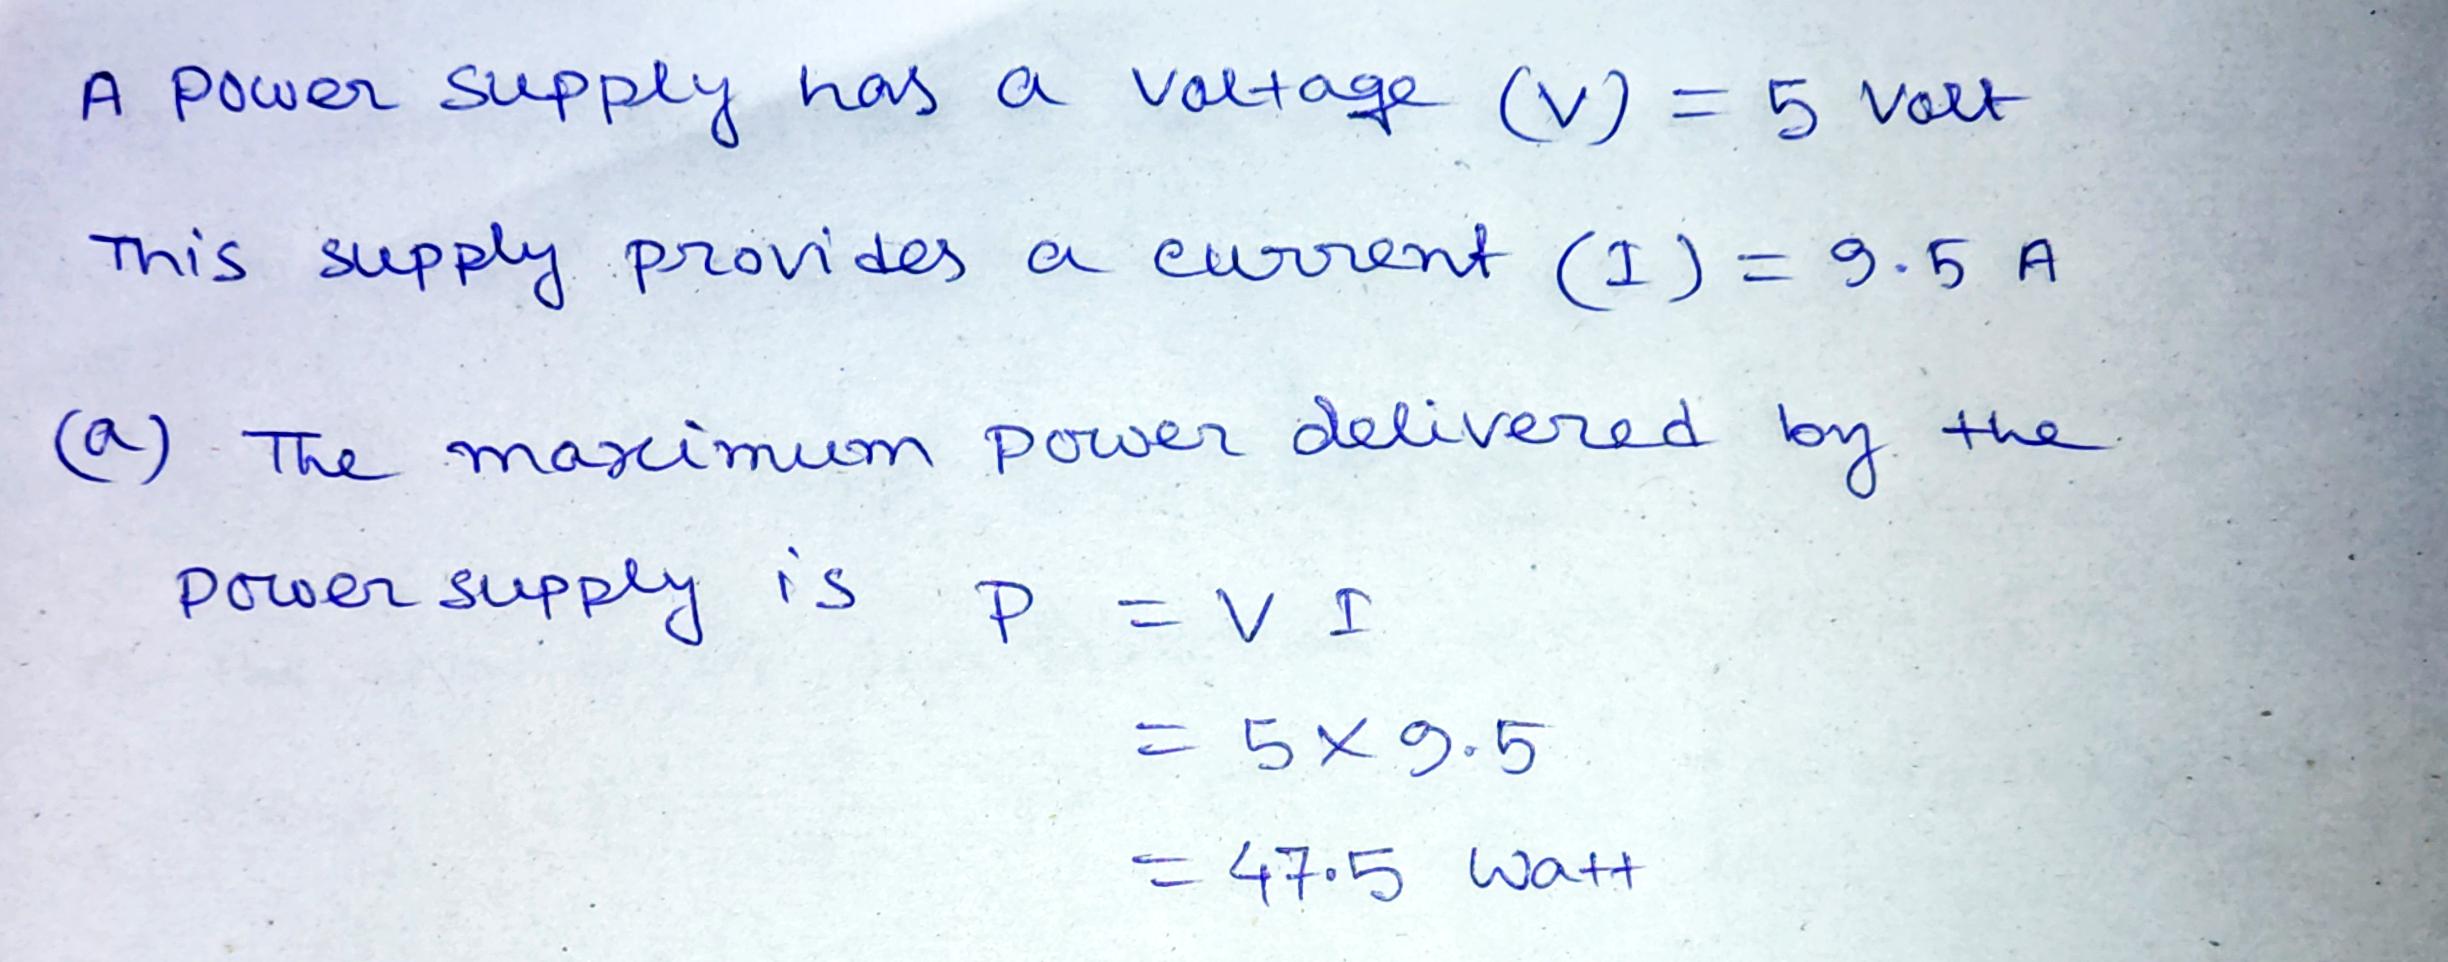 A power supply has a voltage (V) = 5 Volt
This supply provides a current (I) = 9.5 A
(a) The maximum power delivered by the
power supply is P = V I
= 5 × 9.5
= 47.5 Watt